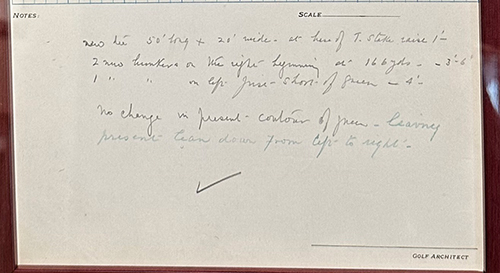 NOTES: SCALE
new tee 50' long x 20' wide - at here of T. Stake raise 1'-
2 new bunkers on the right beginning at 166 yds. - 3'-6'
1 " " on left just short of green - 4'-
No change in present contour of green - leaving
present lean down from left to right -
GOLF ARCHITECT